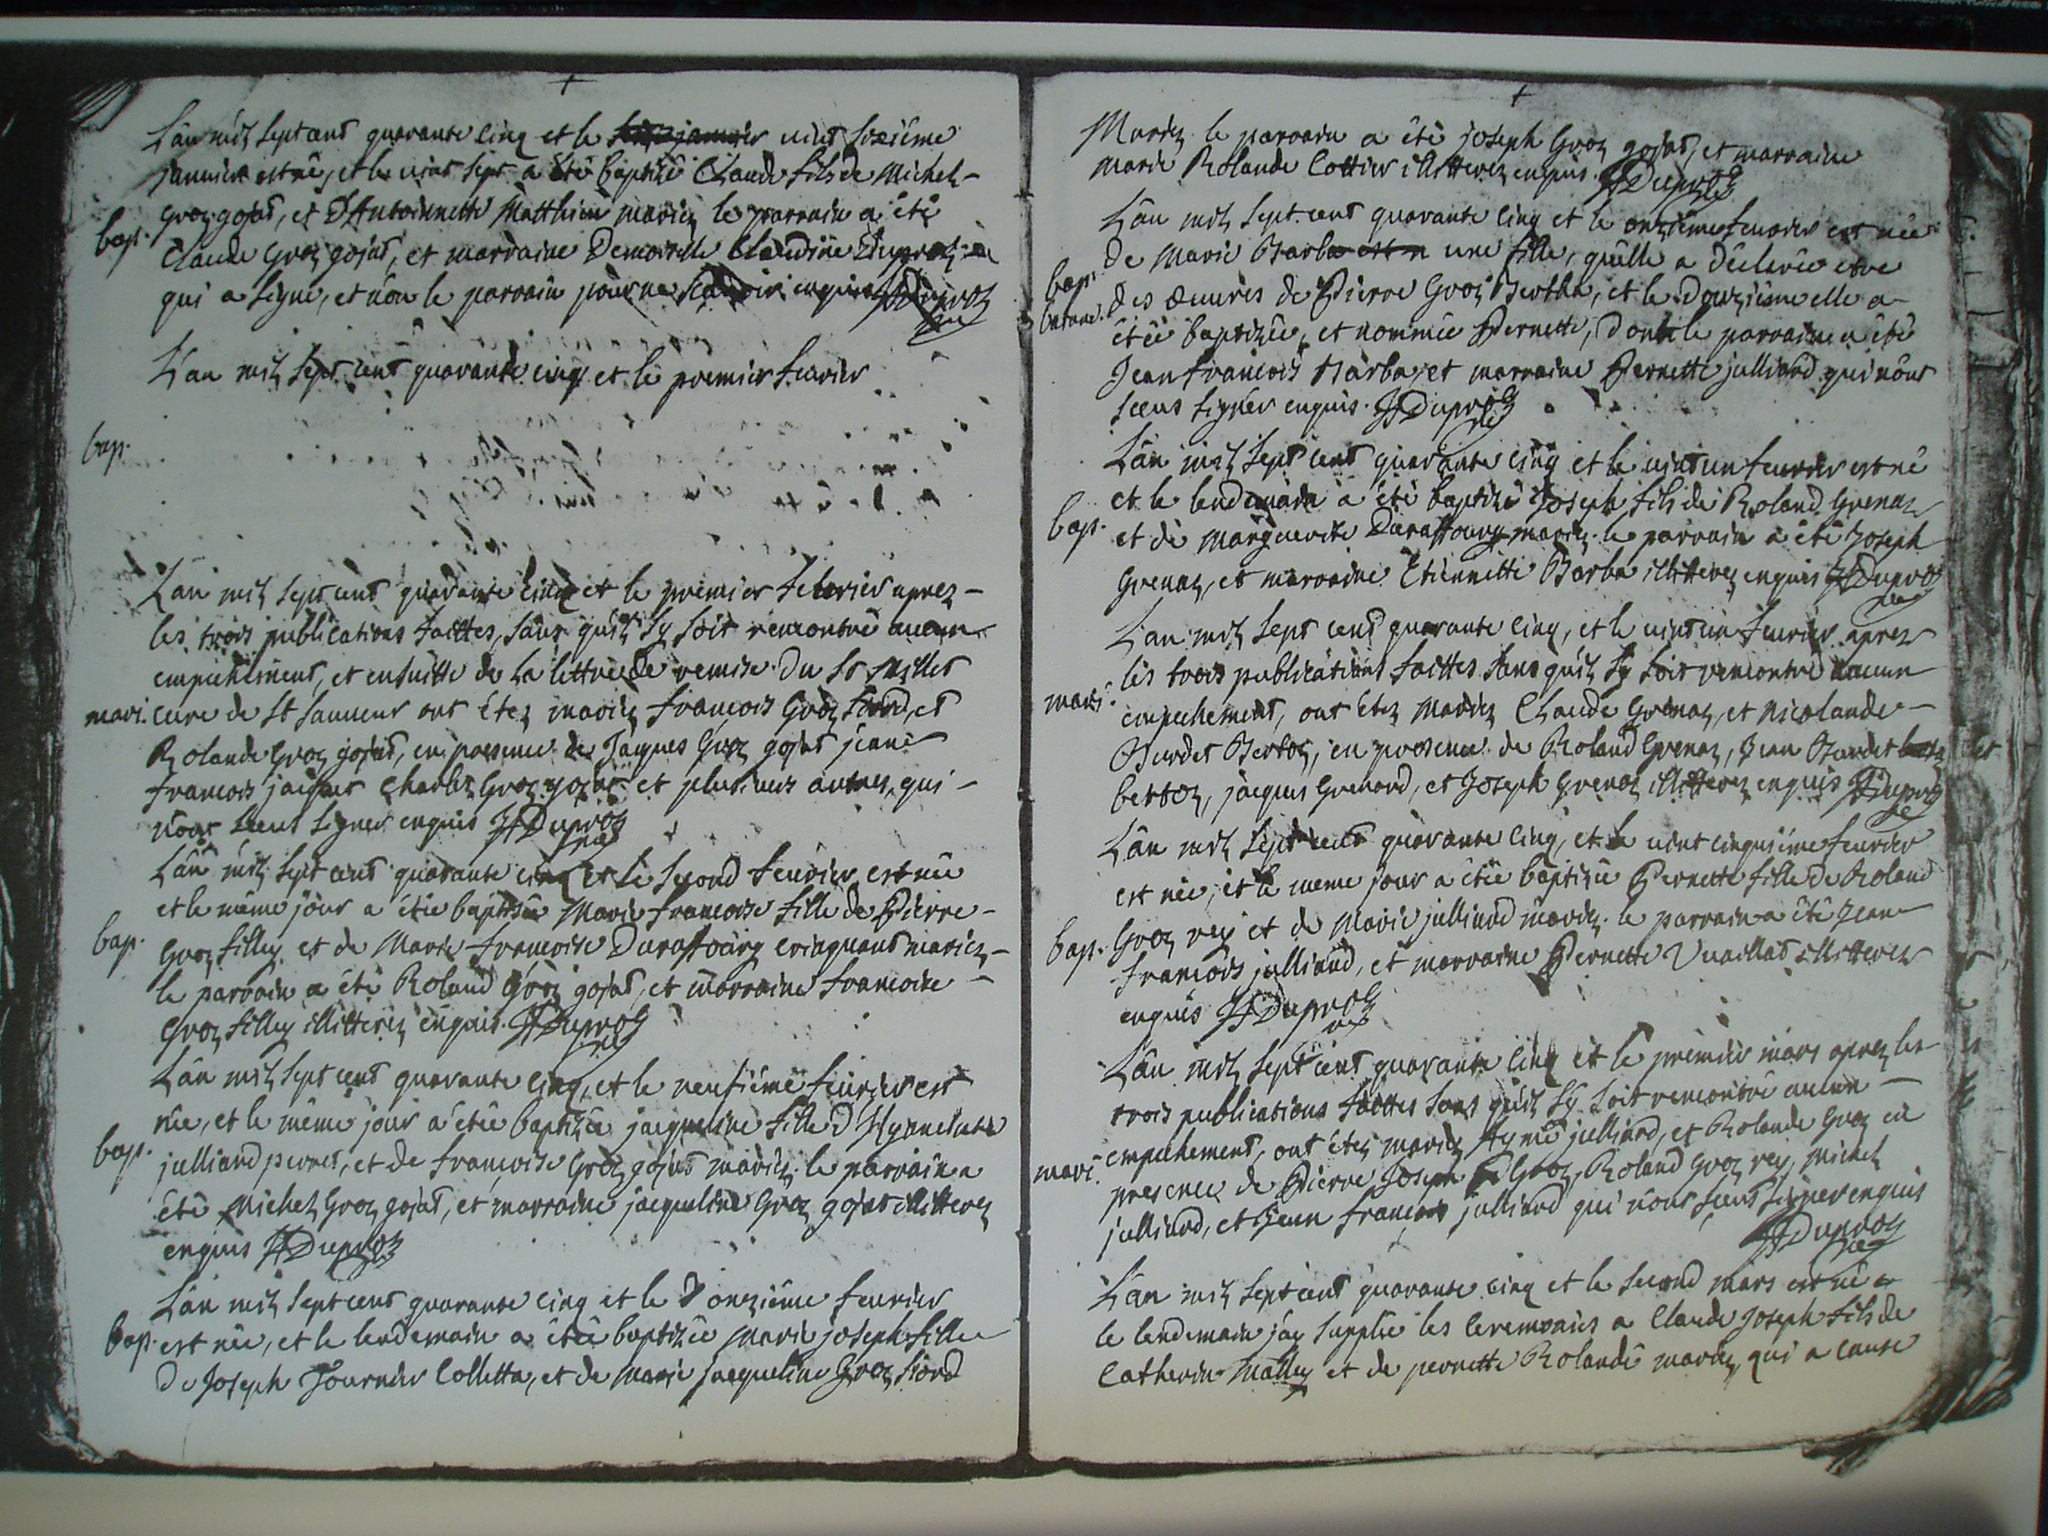 L'an mil sept cent quarante cinq et le vint sixiéme
janvier est né, et le vint sept a été baptizé Claude fils de Michel
bap. Groz gojat, et d'Antoinette Matthieu mariez le parrain a été
Claude Groz gojat, et marraine Demoiselle Claudine Duproz
qui a signé, et non le parrain pour ne scavoir enquis JFDuproz
L'an mil sept cent quarante cinq et le premier fevrier
bap.
L'an mil sept cent quarante cinq et le premier febvrier aprez
les trois publications faittes, sans qu'il sy soit rencontré aucun
empechement, et ensuitte de la lettre de remise du Sr Millet
mari. cure de St Sauveur ont étez mariez francois Groz fiord, et
Rolande Groz gojat, en presence de Jacques Groz gojat jean
francois jacquet Charles Groz gojat et plusieurs autres, qui
n'ont sceus signer enquis JFDuproz
L'an mil sept cent quarante cinq et le second fevrier est née
et le même jour a étée baptisée Marie francoise fille de Pierre
bap. Groz filley et de Marie francoise Duraffourg criaquant mariez
le parrain a été Roland Groz gojat, et marraine francoise
Groz filley illitterez enquis. JFDuproz
L'an mil sept cent quarante cinq, et le neufiéme fevrier est
née, et le même jour a étée baptizée jacqueline fille d'Hyppolite
bap. julliard perret, et de francoise Groz gojat mariez. le parrain a
été Michel Groz gojat, et marraine jacqueline Groz gojat illitterez
enquis JFDuproz
L'an mil sept cent quarante cinq et le onziéme fevrier
bap. est née, et le lendemain a étée baptizée Marie joseph fille
de Joseph Fournier Colletta, et de Marie jacqueline Groz fiord
Mariez. le parrain a été joseph Groz gojat, et marraine
marie Rolande Cottier illitterez enquis. JFDuproz
L'an mil sept cent quarante cinq et le onziéme fevrier est née
de Marie Barba une fille, qu'elle a déclarée etre
bap. des oeuvres de Pierre Groz Bertha, et le douziéme elle a
batarde. étée baptizée, et nommée Pernette, dont le parrain a été
Jean francois Barba, et marraine Pernette julliard qui n'ont
sceus signer enquis. JFDuproz
L'an mil sept cent quarante cinq et le vint un fevrier est né
et le lendemain a été baptizé Joseph fils de Roland Grenaz
bap. et de Marguerite Duraffourg mariez. le parrain a été Joseph
Grenaz, et marraine Etiennette Barba illitterez enquis JFDuproz
L'an mil sept cent quarante cinq, et le vint un fevrier aprez
les trois publications faittes sans qu'il sy soit rencontré aucun
mari. empechement, ont étez mariez Claude Grenaz, et Nicolande
Burdet Bertoz, en presence de Roland Grenaz, Jean Burdet
bertoz, jacques Grenard, et Joseph Grenaz illitterez enquis JFDuproz
L'an mil sept cent quarante cinq, et le vint cinquiéme fevrier
est née, et le meme jour a étée baptizée Pernette fille de Roland
bap. Groz rey et de Marie julliard mariez. le parrain a été Jean
francois julliard, et marraine Pernette Vuaillat illitterez
enquis JFDuproz
L'an mil sept cent quarante cinq et le premier mars aprez les
trois publications faittes sans qu'il sy soit rencontré aucun
mari. empechement, ont étez mariez Aymé julliard, et Rolande Groz en
presence de Pierre Joseph Groz, Roland Groz rey, Michel
julliard, et Jean francois julliard qui n'ont sceus signer enquis
JFDuproz
L'an mil sept cent quarante cinq et le second mars est né
le lendemain jay supplie les ceremonies a Claude Joseph fils de
Catherin Malley et de pernette Rolande mariez, qui a cause